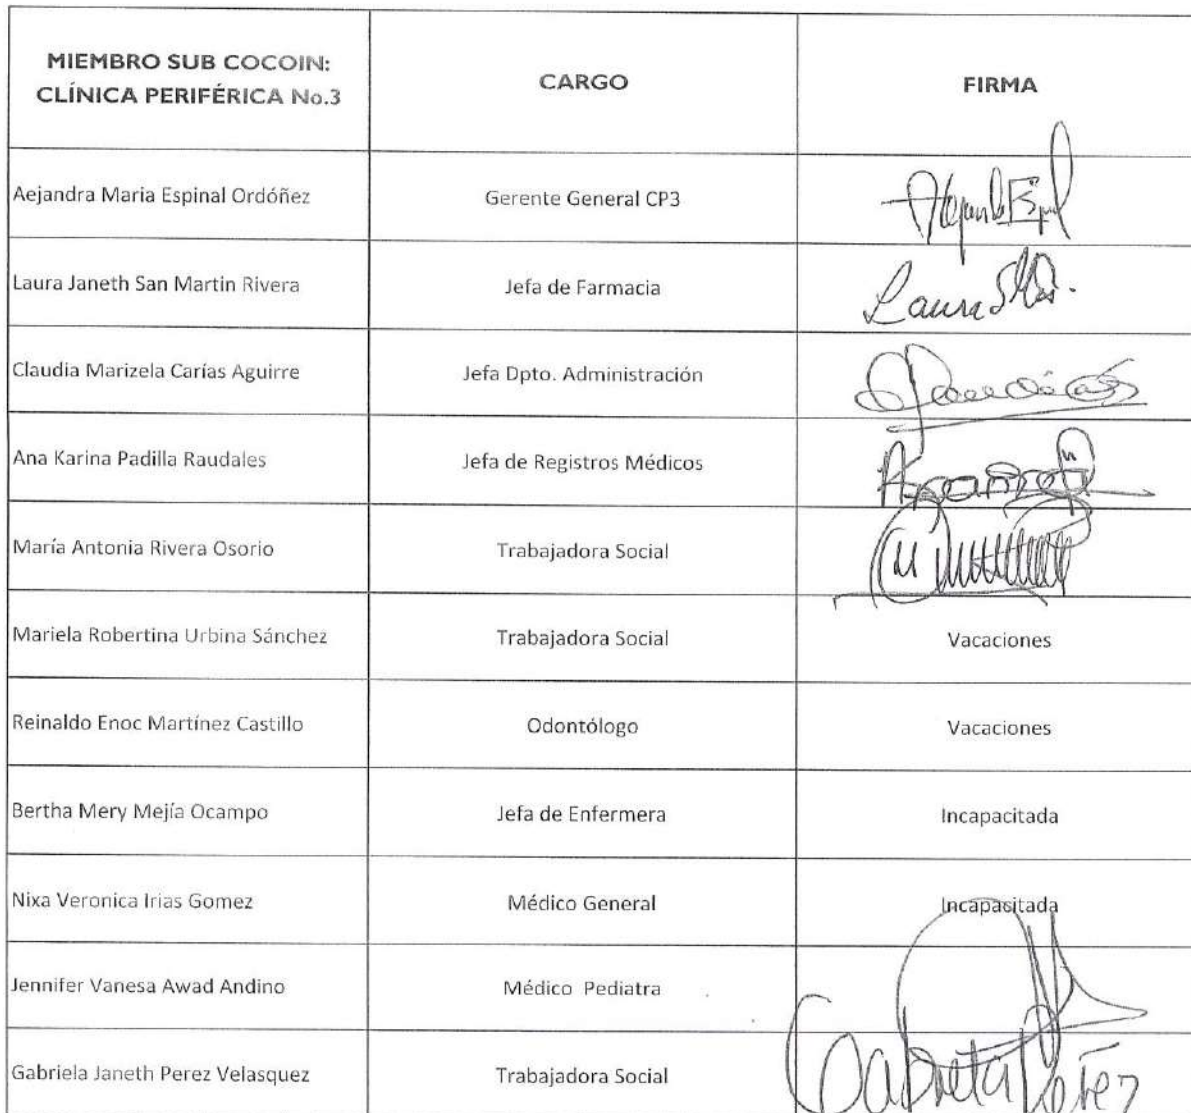 MIEMBRO SUB COCOIN:
CLÍNICA PERIFÉRICA No.3
CARGO
FIRMA
Aejandra Maria Espinal Ordóñez
Gerente General CP3
Laura Janeth San Martin Rivera
Jefa de Farmacia
Laura
Claudia Marizela Carías Aguirre
Jefa Dpto. Administración
Ana Karina Padilla Raudales
Jefa de Registros Médicos
María Antonia Rivera Osorio
Trabajadora Social
Mariela Robertina Urbina Sánchez
Trabajadora Social
Vacaciones
Reinaldo Enoc Martínez Castillo
Odontólogo
Vacaciones
Bertha Mery Mejía Ocampo
Jefa de Enfermera
Incapacitada
Nixa Veronica Irias Gomez
Médico General
Incapacitada
Jennifer Vanesa Awad Andino
Médico Pediatra
Gabriela Janeth Perez Velasquez
Trabajadora Social
Gabriela Pérez